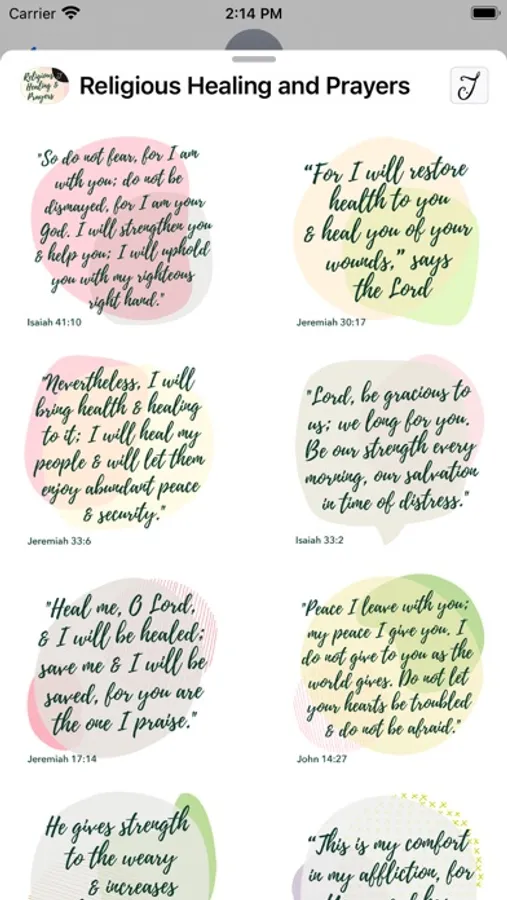 Carrier
2:14 PM
Religious
Healing &
Prayers
Religious Healing and Prayers
J
"So do not fear, for I am
with you; do not be
dismayed, for I am your
God. I will strengthen you
& help you; I will uphold
you with my righteous
right hand."
Isaiah 41:10
“For I will restore
health to you
& heal you of your
wounds,” says
the Lord
Jeremiah 30:17
"Nevertheless, I will
bring health & healing
to it; I will heal my
people & will let them
enjoy abundant peace
& security."
Jeremiah 33:6
"Lord, be gracious to
us; we long for you.
Be our strength every
morning, our salvation
in time of distress."
Isaiah 33:2
"Heal me, O Lord,
& I will be healed;
save me & I will be
saved, for you are
the one I praise."
Jeremiah 17:14
"Peace I leave with you;
my peace I give you. I
do not give to you as the
world gives. Do not let
your hearts be troubled
& do not be afraid."
John 14:27
He gives strength
to the weary
& increases
“This is my comfort
in my affliction, for